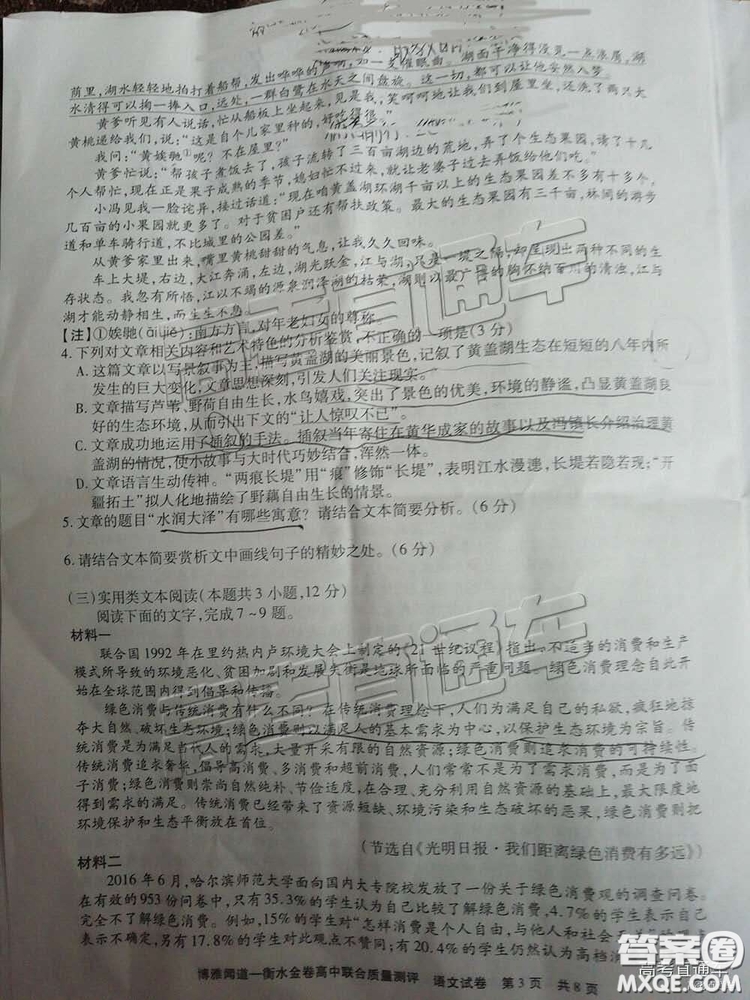 荫里,湖水轻轻地拍打着船帮,发出哗哗的声响,如一支催眠曲。湖面干净得没见一点浪屑,湖
水清得可以掬一捧入口,远处,一群白鹭在水天之间盘旋。这一切,都可以让他安然入梦。
黄爹听见有人说话,忙从躺板上坐起来,见是我,笑呵呵地让我们到屋里坐,还洗了两只大
黄桃递给我们,说:“这是自个儿家里种的,好吃得很。”
我问:“黄娭毑①呢?不在屋里?”
黄爹忙说:“帮孩子煮饭去了,孩子流转了三百亩湖边的荒地,弄了个生态果园,请了十几
个人帮忙,现在正是果子成熟的季节,媳妇忙不过来,就让老婆子过去弄饭给他们吃。”
小冯见我一脸诧异,接过话道:“现在咱黄盖湖环湖千亩以上的生态果园差不多有十多个,
几百亩的小果园就更多了。对于贫困户还有帮扶政策。最大的生态果园有三千亩,林间的游步
道和单车骑行道,不比城里的公园差。”
从黄爹家里出来,嘴里黄桃甜甜的气息,让我久久回味。
车上大堤,右边,大江奔涌,左边,湖光跃金,江与湖,只是一堤之隔,却展现出两种不同的生
存状态。我忽有所悟,江以不竭的源泉润泽湖的枯荣,湖则以最广阔的胸怀纳百川的清浊,江与
湖才能动静相生,而生生不息。
【注】①娭毑(āi jiě):南方方言,对年老妇女的尊称。
4. 下列对文章相关内容和艺术特色的分析鉴赏,不正确的一项是(3分)
A. 这篇文章以写景叙事为主,描写黄盖湖的美丽景色,记叙了黄盖湖生态在短短的八年内所
发生的巨大变化,文章思想深刻,引发人们关注现实。
B. 文章描写芦苇、野荷自由生长,水鸟嬉戏,突出了景色的优美,环境的静谧,凸显黄盖湖良
好的生态环境,从而引出下文的“让人惊叹不已”。
C. 文章成功地运用了插叙的手法。插叙当年寄住在黄华成家的故事以及冯镇长介绍治理黄
盖湖的情况,使小故事与大时代巧妙结合,浑然一体。
D. 文章语言生动传神。“两痕长堤”用“痕”修饰“长堤”,表明江水漫漶,长堤若隐若现;“开
疆拓土”拟人化地描绘了野藕自由生长的情景。
5. 文章的题目“水润大泽”有哪些寓意?请结合文本简要分析。(6分)
6. 请结合文本简要赏析文中画线句子的精妙之处。(6分)
(三)实用类文本阅读(本题共3小题,12分)
阅读下面的文字,完成7~9题。
材料一
联合国1992年在里约热内卢环境大会上制定的《21世纪议程》指出,不适当的消费和生产
模式所导致的环境恶化、贫困加剧和发展失衡是地球所面临的严重问题。绿色消费理念自此开
始在全球范围内得到倡导和传播。
绿色消费与传统消费有什么不同?在传统消费理念下,人们为满足自己的私欲,疯狂地掠
夺大自然、破坏生态环境;绿色消费则以满足人的基本需求为中心,以保护生态环境为宗旨。传
统消费是为满足当代人的需求,大量开采有限的自然资源;绿色消费则追求消费的可持续性。
传统消费追求奢华,倡导高消费、多消费和超前消费,人们常常不是为了需求消费,而是为了面
子消费;绿色消费则崇尚自然纯朴、节俭适度,在合理、充分利用自然资源的基础上,最大限度地
得到需求的满足。传统消费已经带来了资源短缺、环境污染和生态破坏的恶果,绿色消费则把
环境保护和生态平衡放在首位。
(节选自《光明日报·我们距离绿色消费有多远》)
材料二
2016年6月,哈尔滨师范大学面向国内大专院校发放了一份关于绿色消费观的调查问卷。
在有效的953份问卷中,只有35.3%的学生认为自己比较了解绿色消费,4.7%的学生表示自己
完全不了解绿色消费。例如,15%的学生对“怎样消费是个人自由,与他人和社会无关”的观点
表示不确定,另有17.8%的学生对此观点表示不太赞同;有20.4%的学生仍然认为高档消
博雅闻道—衡水金卷高中联合质量测评 语文试卷 第3页 共8页
高考直通车
高考直通车
高考直通车
答案圈
MXQE.COM